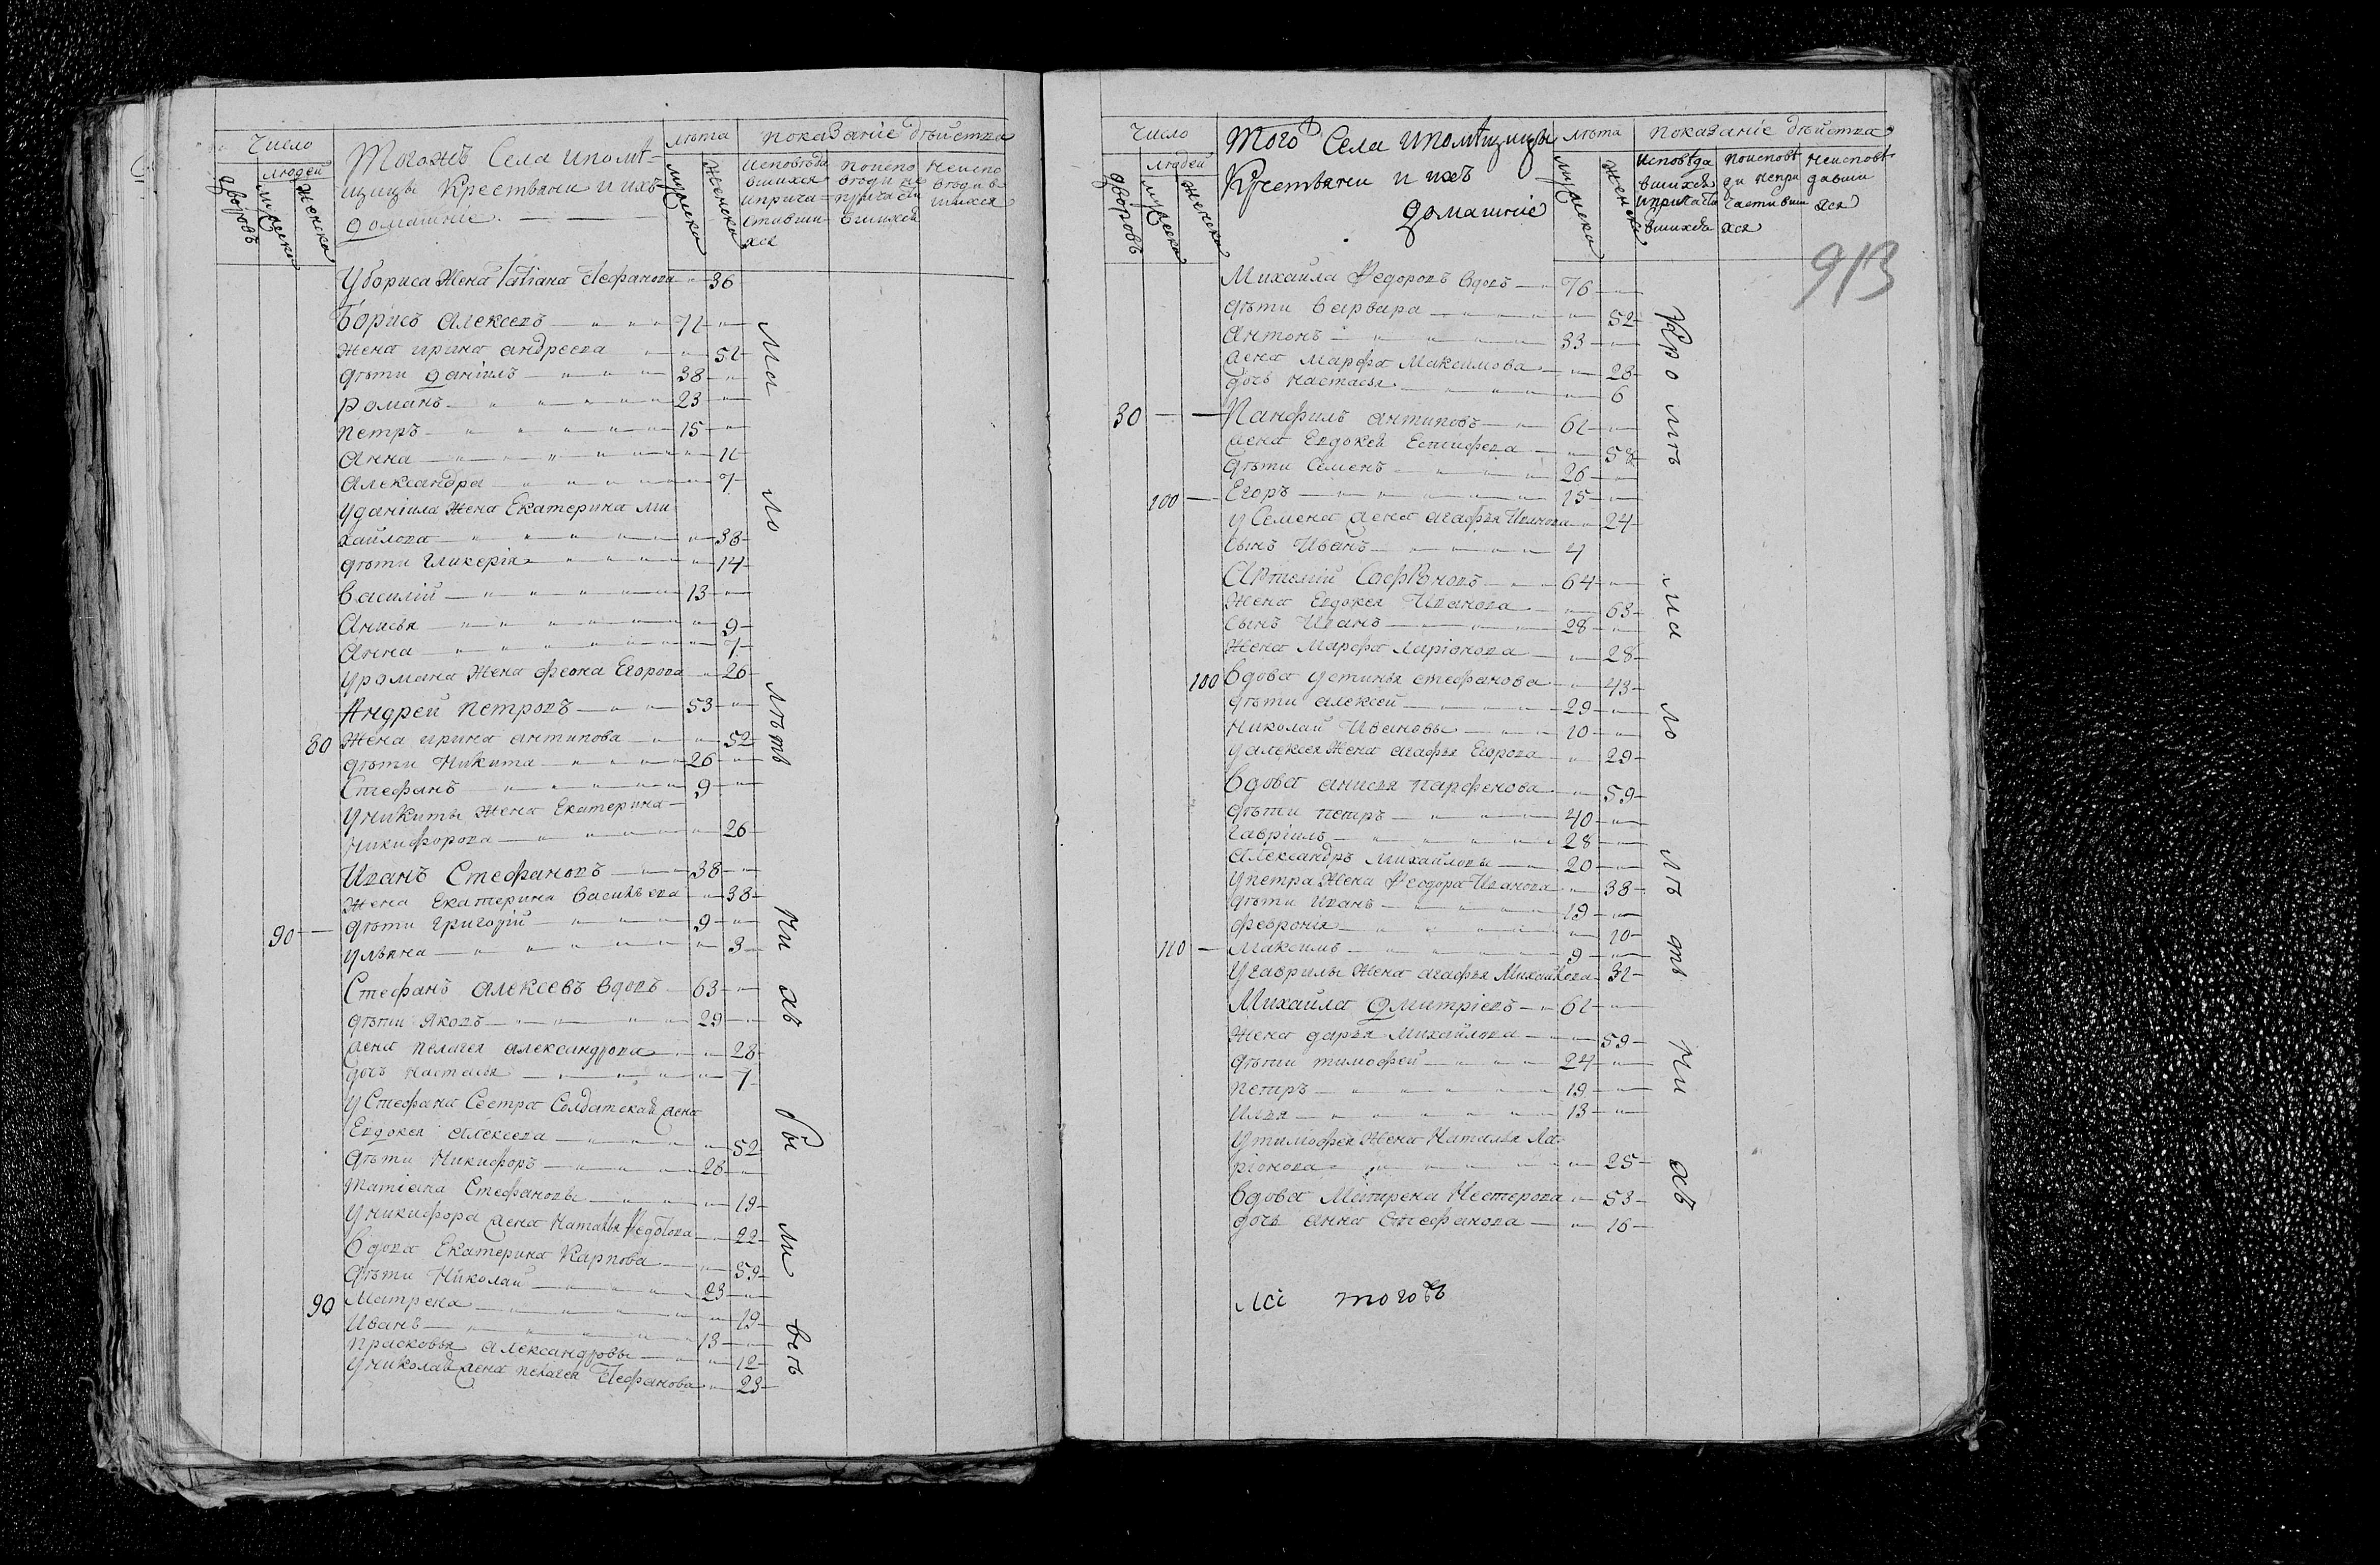 Число
людей
дворовъ
мужеска
женска
Тогожъ Села ипомѣ-
щицы Крестьяни и ихъ
домашніе.
лѣта
мужеска
женска
показаніе дѣйства
исповѣда
вшихся
иприча-
стивши
хся
Убориса Жена Татіана Стефанова 36
Борисъ Алексевъ 71
Жена ирина андреева 51
дѣти даніилъ 38
романъ 23
петръ 15
Анна 11
Александра 7
Уданіила Жена Екатерина Ми
хайлова 38
дѣти Гликерія 14
Василій 13
Анисья 9
Анна 7
Уромана Жена феона Егорова 26
Андрей Петровъ 53
80 Жена ирина антипова 52
дѣти Никита 26
Стефанъ 9
Уникиты Жена Екатерина
Никифорова 26
Иванъ Стефановъ 38
Жена Екатерина Васильева 38
90 дѣти Григорій 9
ульяна 3
Стефанъ Алексевъ вдовъ 63
дѣти Яковъ 29
жена пелагея александрова 28
дочь Наталья 7
У Стефана Сестра Солдатская жена
Евдокея Алексева 52
дѣти Никифоръ 26
Татіана Стефановы 19
Уникифора жена Наталья Федотова 22
Вдова Екатерина Карпова 59
дѣти Николай 23
90 Матрена 19
Иванъ 13
прасковья Александровы 12
Униколая жена пелагея Стефанова 23
Ма ло лѣтъ
ни хъ
бы ли
всѣ
Число
людей
дворовъ
мужеска
женска
Того Села ипомѣщицы
Крестьяни и ихъ
домашніе
лѣта
мужеска
женска
показаніе дѣйства
исповѣда
вшихся
ипричаст
вшихся
поисповѣ
ди непри
частивши
хся
неисповѣ
давши
хся
913
Михайла Федоровъ вдовъ 76
дѣти варвара 52
Антонъ 33
жена Марфа Максимова 28
дочь настасья 6
30 Панфилъ антиповъ 61
жена Евдокея Естифева 58
дѣти Семенъ 26
100 Егоръ 15
у Семена жена агафья Иванова 24
Сынъ Иванъ 4
Артемій Сафроновъ 64
Жена Евдокея Иванова 63
Сынъ Иванъ 28
Жена Марфа Ларіонова 28
100 Вдова устинья стефанова 43
дѣти алексей 29
Николай Ивановы 10
уалексея Жена агафья Егорова 29
Вдова анисья парфенова 59
дѣти петръ 40
Гавріилъ 28
Александръ Михайловы 20
Упетра Жена Феодора Иванова 38
дѣти иванъ 19
феврoнія 10
110 Максимъ 9
Угаврилы Жена агафья Михайлова 31
Михайла дмитріевъ 61
Жена дарья Михайлова 59
дѣти тимофей 24
Петръ 19
Илья 13
Утимофея Жена Наталья Ла-
ріонова 25
Вдова Матрена Нестерова 53
дочь анна Стефанова 16
Кро мѣ
ма ло
лѣ тъ
ни хъ